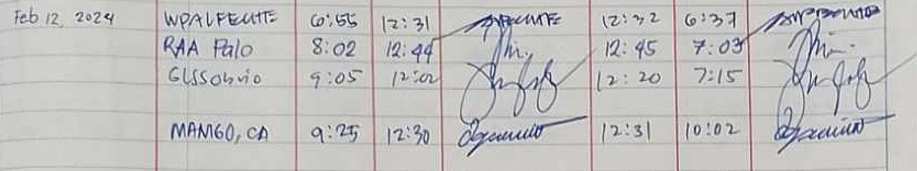 Feb 12 2024 WPALFECHTE 6:55 12:31 12:32 6:37
RAA Palo 8:02 12:44 12:45 7:03
9:05 12:02 12:20 7:15
MANGO, CA 9:25 12:30 12:31 10:02